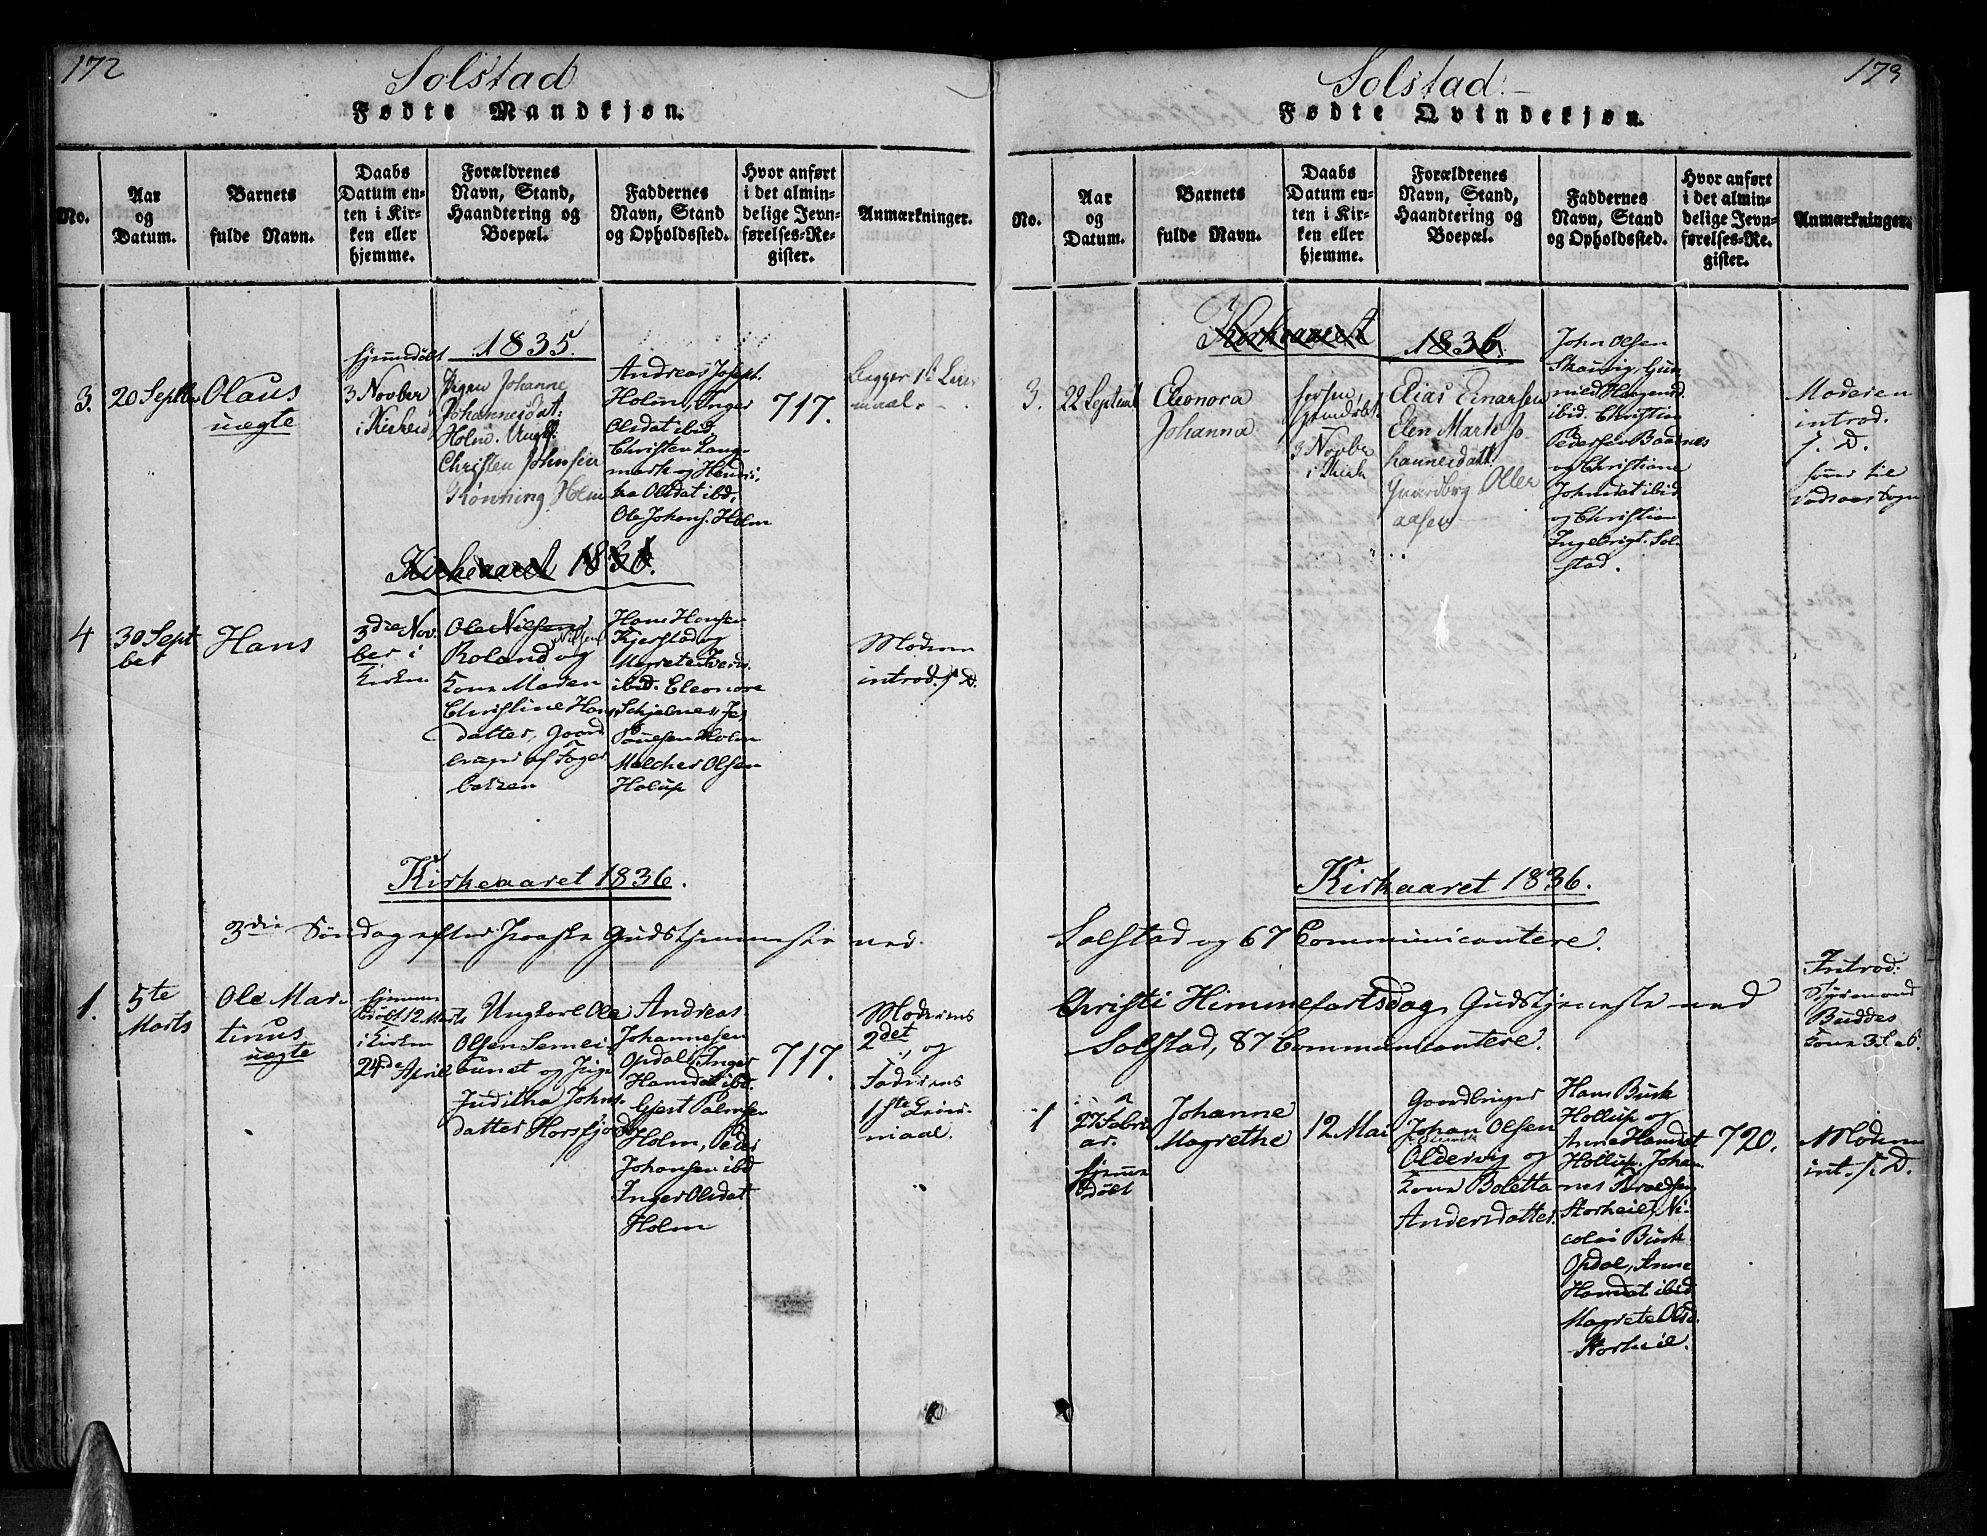 172
Solstad
Fødte Mandkjøn.
No.
Aar
og
Datum.
Barnets
fulde Navn.
Daabs
Datum en-
ten i Kir-
ken eller
hjemme.
Forældrenes
Navn, Stand,
Haandtering og
Boepæl.
Faddernes
Navn, Stand
og Opholdssted.
Hvor anført
i det almin-
delige Jevn-
førelses-Re-
gister.
Anmærkninger.
1835.
3.
20 Septbr
Olaus
uægte
hjemdøbt
3 Novber
i Kirken
Pigen Johanne
Johannesdat:
Holm. Ungk.
Christen Johnsen
Rønning Holm
Andreas Joseph.
Holm, Inger
Olsdat ibid,
Christen Lang-
mark og Hendri-
ka Olsdat ibd.
Ole Johans. Holm
717.
Begges 1ste Leier-
maal.
Kirkeaaret 1836.
4
30 Sept
ber
Hans
3die Nov.
ber i
Kirken
Ole Nilsen
Nilsen
Roland og
Kone Maren
Christine Hans
datter, Gaard
bruger af Foger
Hans Hansen
Kjerstad og
Magrete Iverd.
ibid. Eleonore
Schjelnes, Je
Povelsen Holm
Melcher Olsen
Holup
Moderen
introd. s. D.
Kirkeaaret 1836.
3die Søndag efter Paaske Gudstjenneste ved
1.
5te
Marts
Ole Mar-
tinus
uægte
hjemme
døbt 12 Marts
i Kirken
24de April
Ungkarl Ole
Olsen Semei-
bunet og Pige
Juditha Johns-
datter Horsfjord
Andreas
Johannesen
Opdal, Inger
Hansdat ibd.
Gjert Palmsen
Holm, Peder
Johansen ibd
Inger Olsdat
Holm
717.
Moderens
2det, og
Faderens
1ste Leier-
maal.
173
Solstad.
Fødte Qvindekjøn.
No.
Aar
og
Datum.
Barnets
fulde Navn.
Daabs
Datum en-
ten i Kir-
ken eller
hjemme.
Forældrenes
Navn, Stand,
Haandtering og
Boepæl.
Faddernes
Navn, Stand
og Opholdssted.
Hvor anført
i det almin-
delige Jevn-
førelses-Re-
gister.
Anmærkninger.
Kirkeaaret 1836
3.
22 Septemb
Eleonora
Johanna
hjemdøbt
3 Novber
i Kirken
Elias Einarsen
Elen Marta Jo-
hannesdatt.
Oller
aasen
John Olsen
Skauvig, Gun
nild Hagensd
ibid. Christian
Pedersen Baadnes
og Christiane
Johnsdat ibid
og Christian
Ingebrigt. Sol-
stad.
Moderen
introd.
s. D.
til
Vadsaas Sogn
Kirkaaret 1836.
Solstad og 67 Communicantere.
Christi Himmelfartsdag, Gudstjeneste ved
Solstad, 87 Communicantere.
Introd:
Styrmand
Buddes
Kone
1
27 Febru-
ar.
hjemme
døbt
Johanne
Magrethe
12 Mai
Gaardbruger
Johan Olsen
Oldervig og
Kone Boletta
Andersdatter
Hans Busk
Hollup og
Anne Hansdat
Hollup. Johan-
nes Troelsen
Storheil, Ni-
colai Busk
Opdal, Anne
Hansdat ibid
Magrete Olsd.
Storheil.
720.
Moderen
int. s. D.